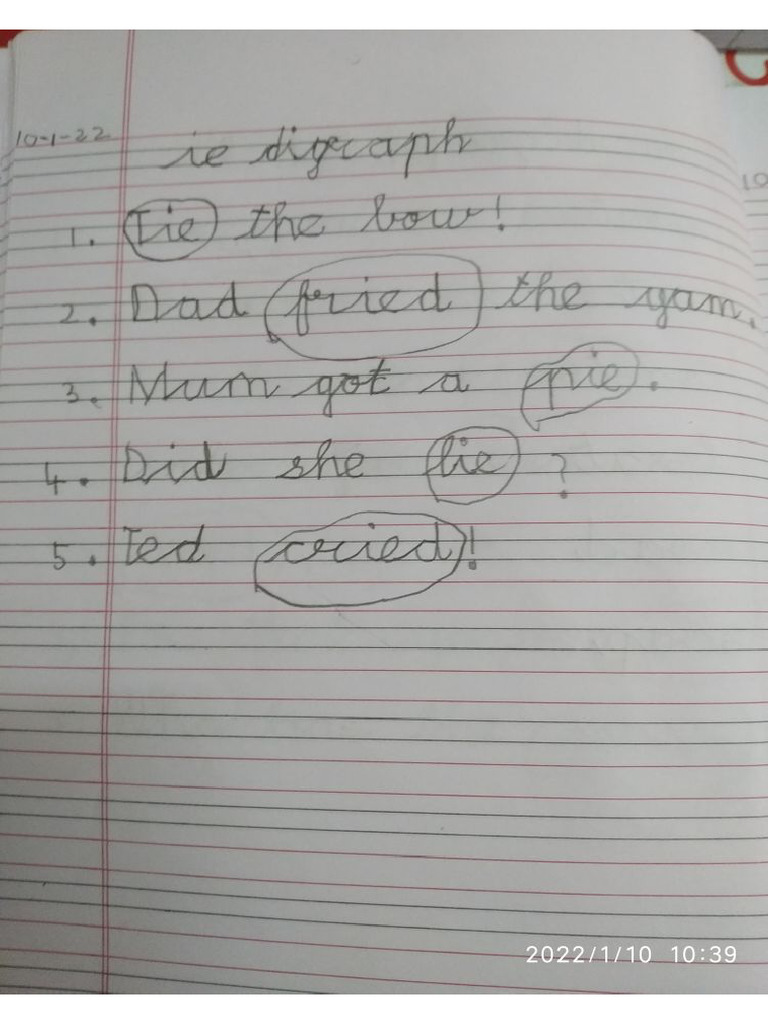 10-1-22
ie digraph
1. Tie the bow!
2. Dad fried the yam.
3. Mum got a pie.
4. Did she lie?
5. Ted cried!
10
2022/1/10 10:39